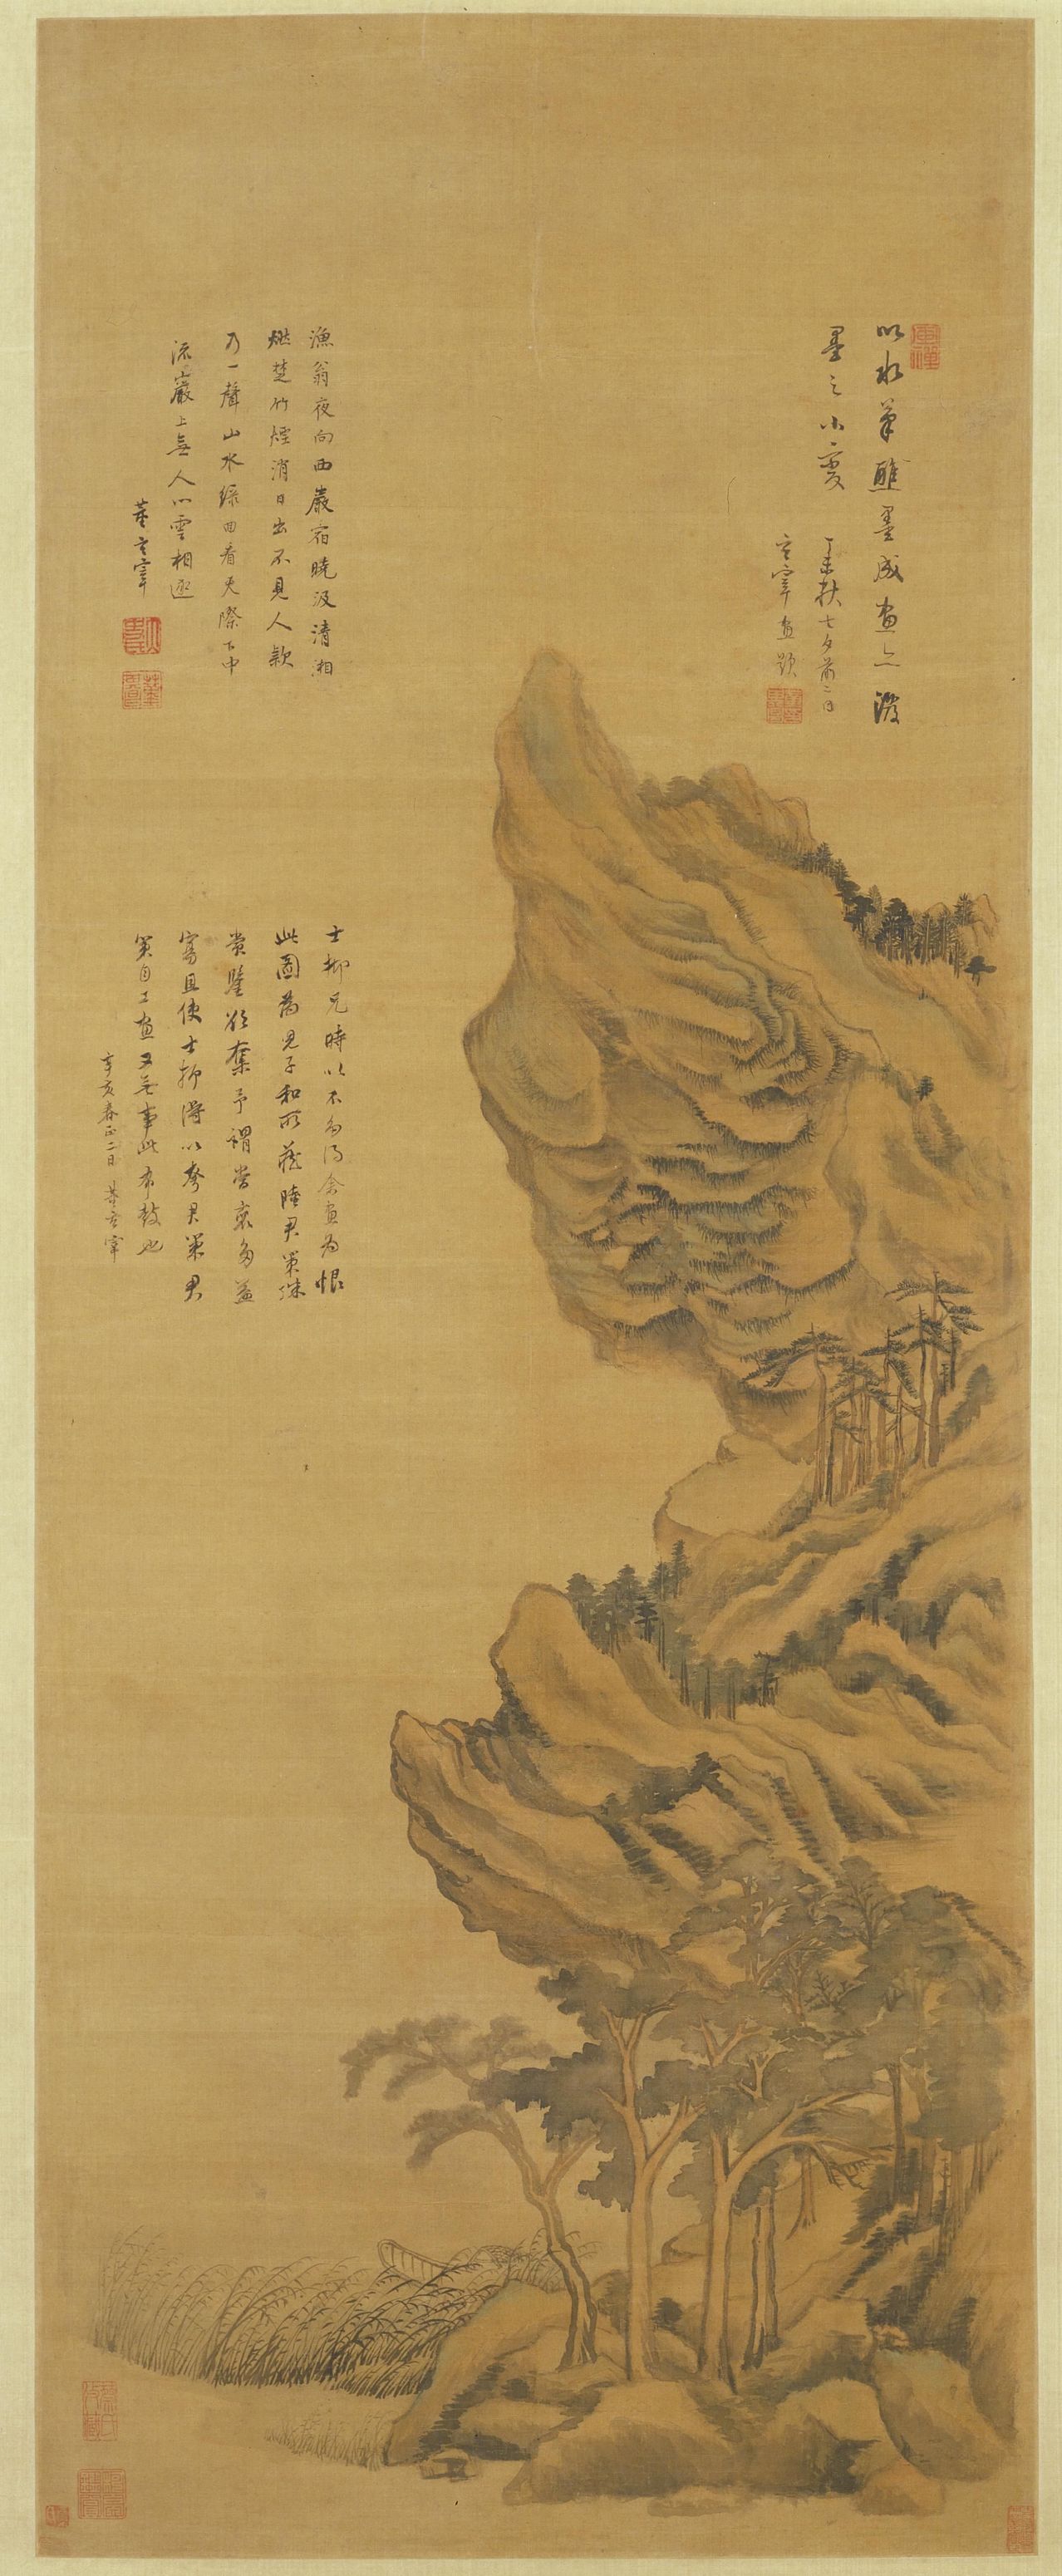 以水筆醮墨成畫亦潑
墨之小變
丁未秋七夕前二日
玄宰畫題
漁翁夜向西巖宿曉汲清湘
燃楚竹煙消日出不見人欸
乃一聲山水綠回看天際下中
流巖上無人心雲相逐
董玄宰
士抑兄時以不多得余畫為恨
此圖為兒子和所藏陸君策殊
賞鑒欲奪予謂當裒多益
寡且使士抑得以夸君策君
策自工畫又無事此木教也
辛亥春正二日 董玄宰